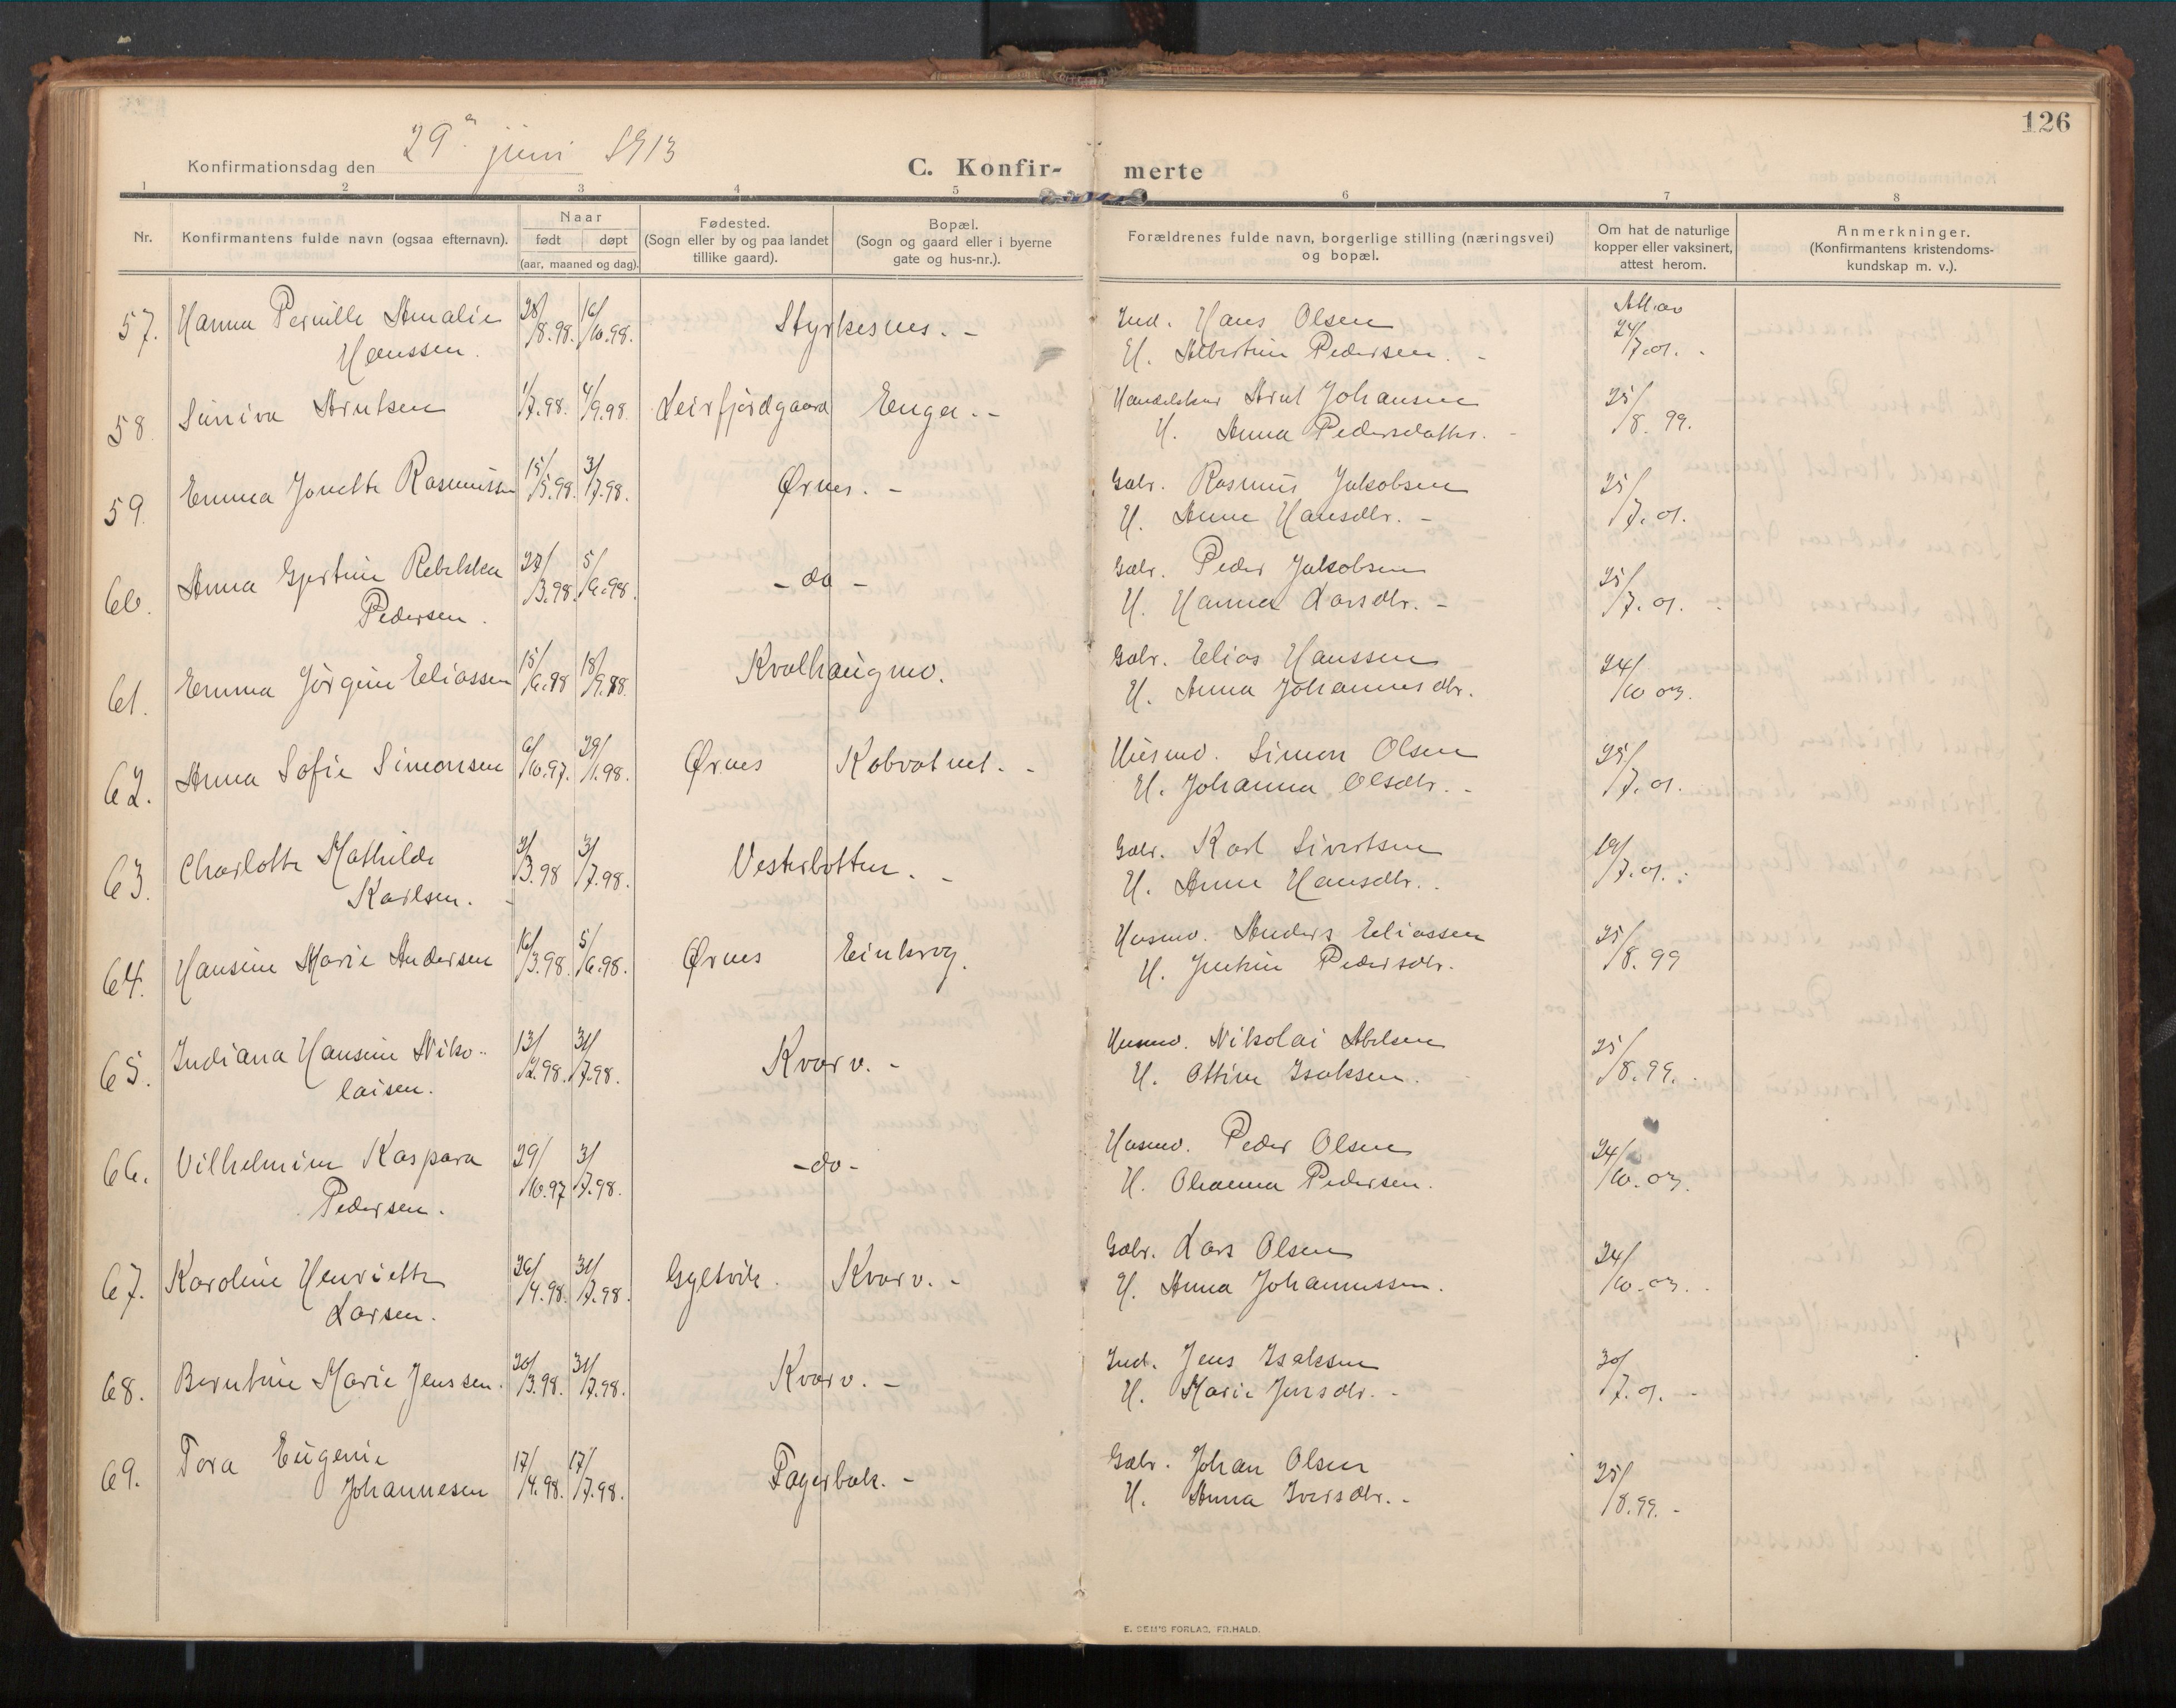 126
Konfirmationsdag den 29de juni 1913
C. Konfir- merte
1 2 3 4 5 6 7 8
Nr.
Konfirmantens fulde navn (ogsaa efternavn).
Naar
født døpt
(aar, maaned og dag).
Fødested.
(Sogn eller by og paa landet
tillike gaard).
Bopæl.
(Sogn og gaard eller i byerne
gate og hus-nr.).
Forældrenes fulde navn, borgerlige stilling (næringsvei)
og bopæl.
Om hat de naturlige
kopper eller vaksinert,
attest herom.
Anmerkninger.
(Konfirmantens kristendoms-
kundskap m. v.).
57. Hanna Pernille Amalie 28/8.98. 16/10.98. Styrkesnes. - Ind. Hans Olsen Att. av 24/7.01. -
Hanssen. H. Albertine Pedersen. -
58. Suniva Arntsen 1/7.98. 4/9.98 Leirfjordgaard Enga. - Arnt Johansen 25/8.99.
H. Anna Pedersdatter. -
59. Emma Jonette Rasmussen 15/5.98. 31/7.98. Ørnes. - Gbr. Rasmus Jakobsen 25/7.01.
H. Anne Hansdtr. -
60. Anna Gjertine Rebekka 27/3.98. 5/6.98. - do - Gbr. Peder Jakobsen 25/7.01.
Pedersen. H. Hanna Larsdtr. -
61. Emma Jörgine Eliassen 15/6.98 18/9.98. Kvalhaugmo. Gbr. Elias Hanssen 24/10 03.
H. Anna Johannesdtr.
62. Anna Sofie Simonsen 6/10.97. 29/1.98. Ørnes Kobvatnet. - Husmd. Simon Olsen 25/7.01.
H. Johanna Olsdtr. -
63. Charlotte Mathilde 3/3.98 31/7.98. Vesterbotten. - Gbr. Karl Sivertsen 19/7.01.
Karlsen. - H. Anne Hansdtr.
64. Hansine Marie Andersen 16/3.98. 5/6.98. Ørnes Einkrog. Husmd. Anders Eliassen 25/8.99
H. Pedersdtr.
65. Indiana Hansine Niko- 13/2.98. 31/7.98. Kvarv. - Husmd. Nikolai Abelsen 25/8.99.
laisen. H. Ottine Isaksen.
66. Vilhelmine Kaspara 29/10.97 31/7.98. -do- Husmd. Peder Olsen 24/10.03.
Pedersen. H. Oleanna Pedersen.
67. Karoline Henriette 26/4.98. 31/7.98. Gyltvik. Kvarv. - Gbr. Lars Olsen 24/10.03.
Larsen. H. Anna Johannessen.
68. Berntine Marie Jenssen. 20/3.98. 31/7.98. Kvarv. - Ind. Jens Isaksen 30/7.01. -
H. Marie Jensdtr. -
69. Tora Eugenie 17/4.98. 17/7.98. Fagerbak. - Gbr. Johan Olsen 25/8.99. -
Johannesen H. Anna Iversdtr. -
E. SEM'S FORLAG, FR.HALD.